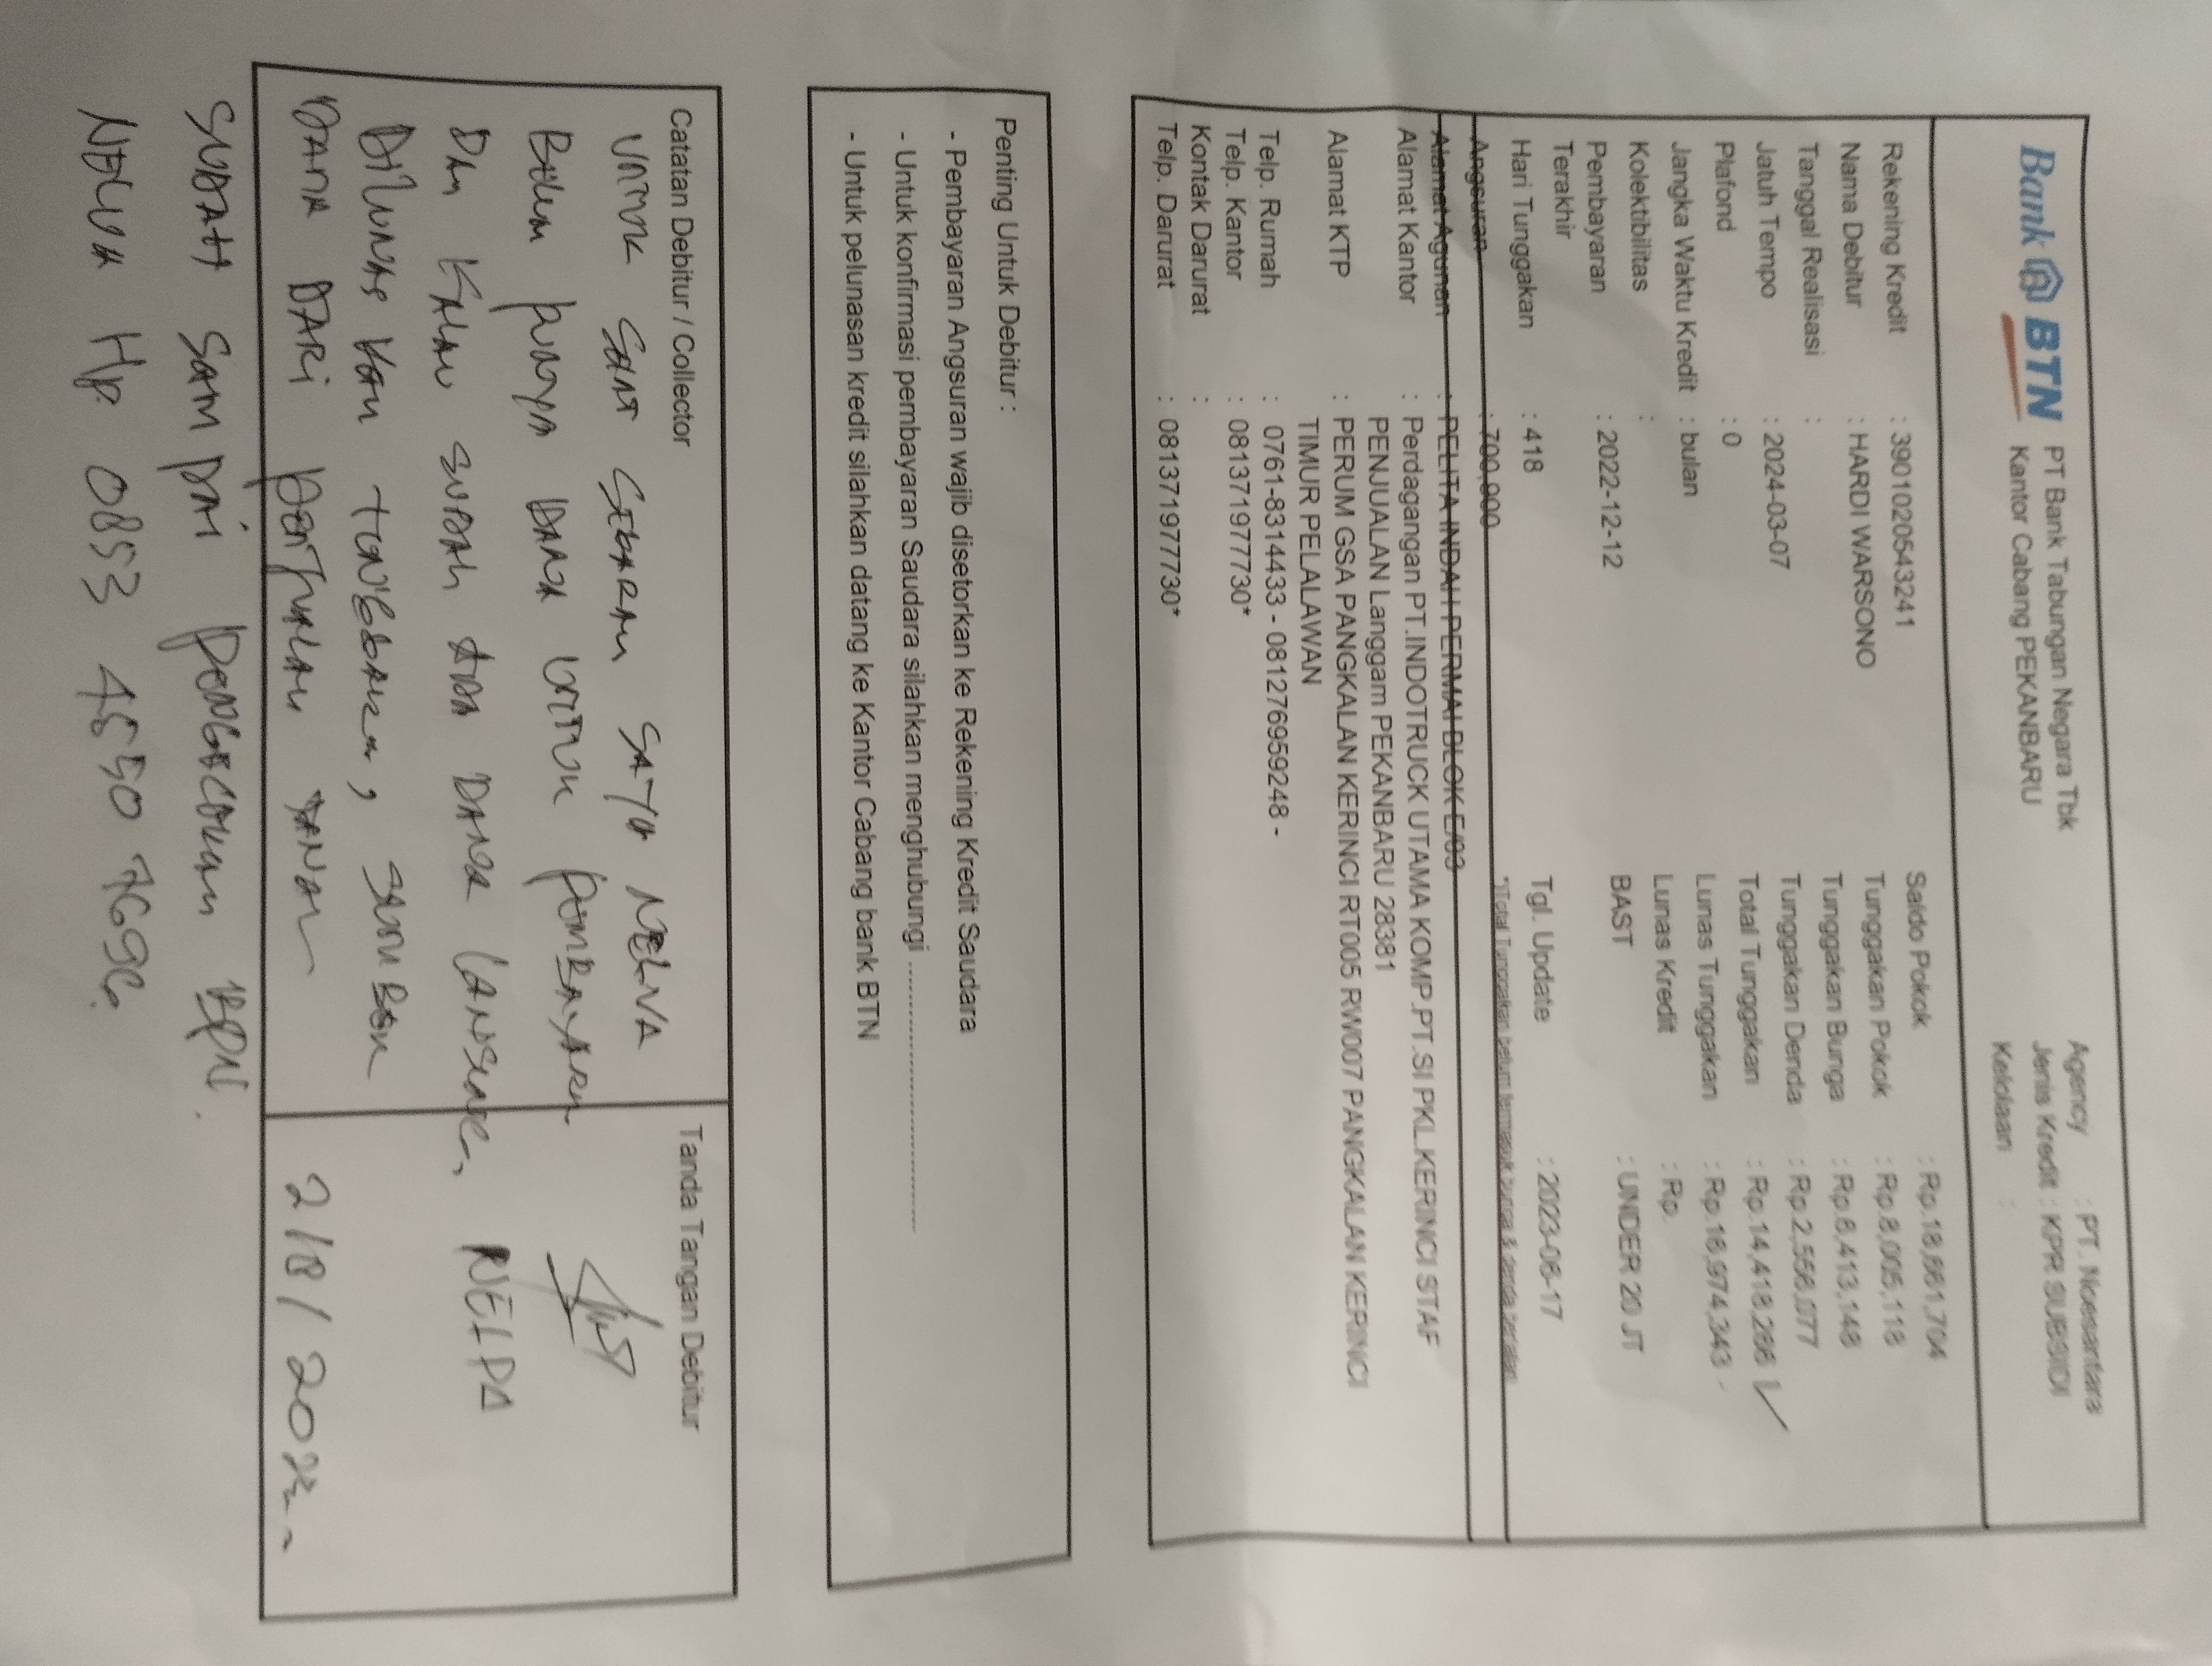 Bank BTN
PT Bank Tabungan Negara Tbk
Kantor Cabang PEKANBARU
Agency : PT. Noesantara
Jenis Kredit : KPR SUBSIDI
Kelolaan :
Rekening Kredit : 3901020543241
Nama Debitur : HARDI WARSONO
Tanggal Realisasi :
Jatuh Tempo : 2024-03-07
Plafond : 0
Jangka Waktu Kredit : bulan
Kolektibilitas :
Pembayaran : 2022-12-12
Terakhir
Hari Tunggakan : 418
Angsuran : 700,000
Saldo Pokok : Rp.18,661,704
Tunggakan Pokok : Rp.8,005,118
Tunggakan Bunga : Rp.6,413,148
Tunggakan Denda : Rp.2,556,077
Total Tunggakan : Rp.14,418,266
Lunas Tunggakan : Rp.16,974,343 -
Lunas Kredit : Rp.
BAST : UNDER 20 JT
Tgl. Update : 2023-06-17
*)Total Tunggakan belum termasuk bunga & denda berjalan
Alamat Agunan : PELITA INDAH PERMAI BLOK E/03
Alamat Kantor : Perdagangan PT.INDOTRUCK UTAMA KOMP.PT.SI PKL.KERINCI STAF
PENJUALAN Langgam PEKANBARU 28381
Alamat KTP : PERUM GSA PANGKALAN KERINCI RT005 RW007 PANGKALAN KERINCI
TIMUR PELALAWAN
Telp. Rumah : 0761-8314433 - 081276959248 -
Telp. Kantor : 081371977730*
Kontak Darurat :
Telp. Darurat : 081371977730*
Penting Untuk Debitur :
- Pembayaran Angsuran wajib disetorkan ke Rekening Kredit Saudara
- Untuk konfirmasi pembayaran Saudara silahkan menghubungi ..............................
- Untuk pelunasan kredit silahkan datang ke Kantor Cabang bank BTN
Catatan Debitur / Collector
UNTUK SAAT SEKARAN NELVA
BELUM PUNYA DANA UNTUK PEMBAYARAN
DAN KALAU SUDAH ADA DANA LANSUNG
DILUNAS KAN TUNGGAKAN,
DANA DARI PENJUALAN TANAH
SUDAH SAMPAI PENGACUKAN BPN.
NELVA HP 0853 4550 7696
Tanda Tangan Debitur
NELPA